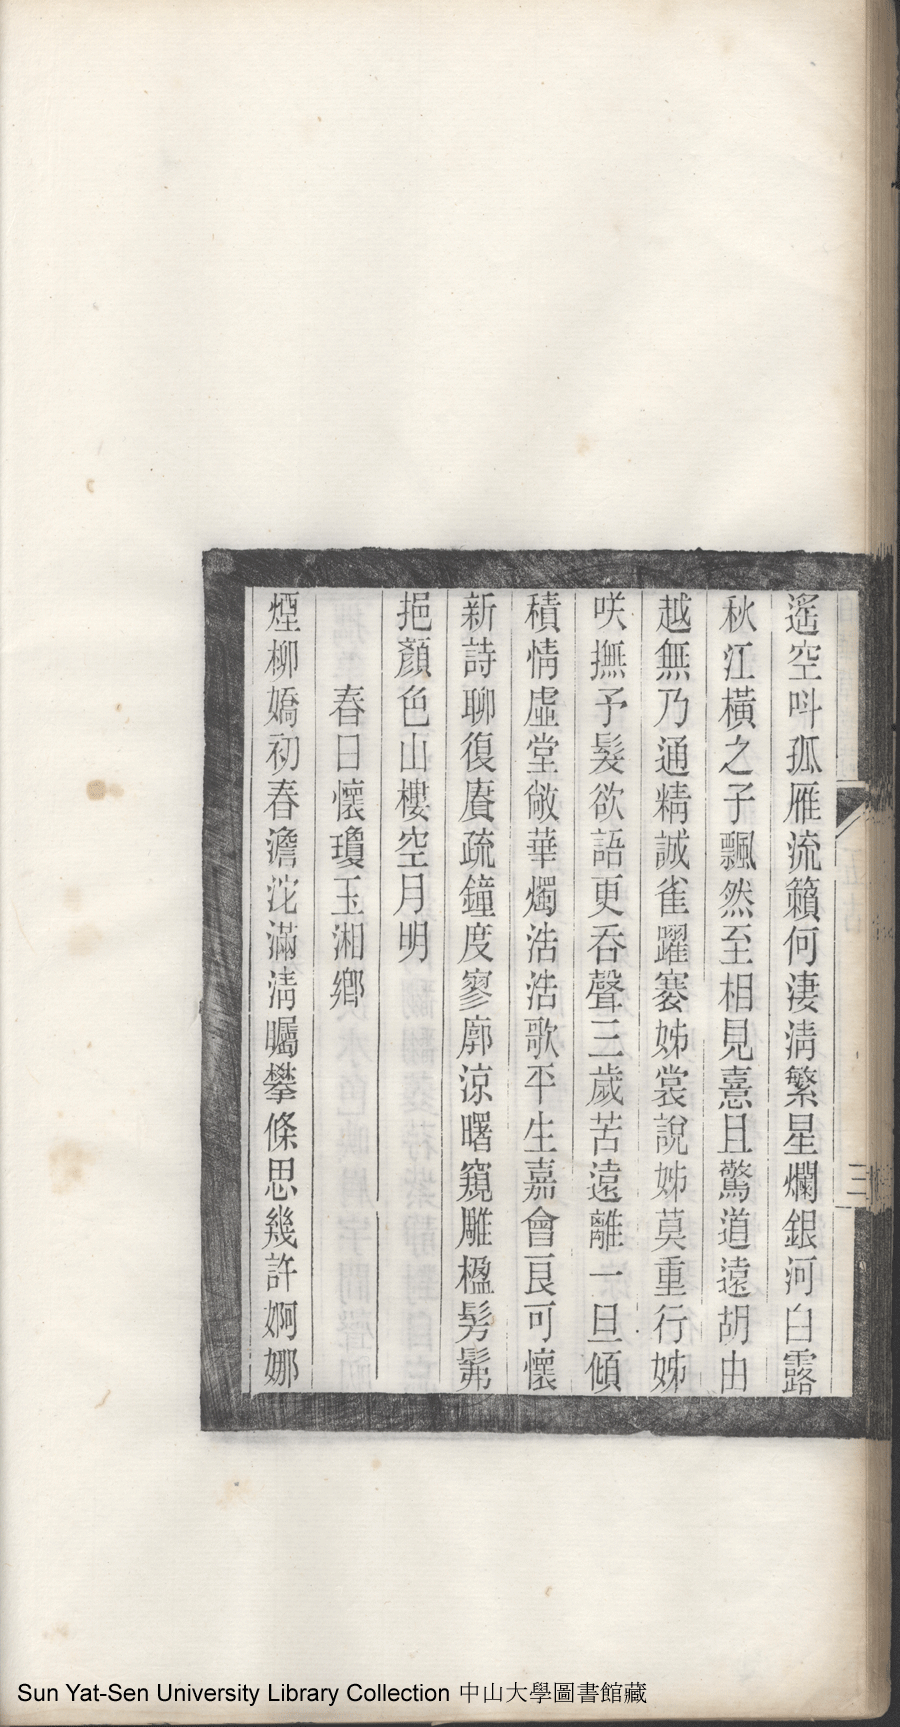 遙空呌孤雁流籟何淒淸繁星爛銀河白露
秋江橫之子飄然至相見憙且驚道遠胡由
越無乃通精誠雀躍褰姊裳說姊莫重行姊
咲撫予髮欲語更吞聲三歲苦遠離一旦傾
積情虛堂敞華燭浩浩歌平生嘉會良可懷
新詩聊復賡疏鐘度寥廓涼曙窺雕楹髣髴
挹顏色山樓空月明
春日懷瓊玉湘鄉
煙柳嬌初春澹沱滿淸矚攀條思幾許婀娜
三
Sun Yat-Sen University Library Collection 中山大學圖書館藏